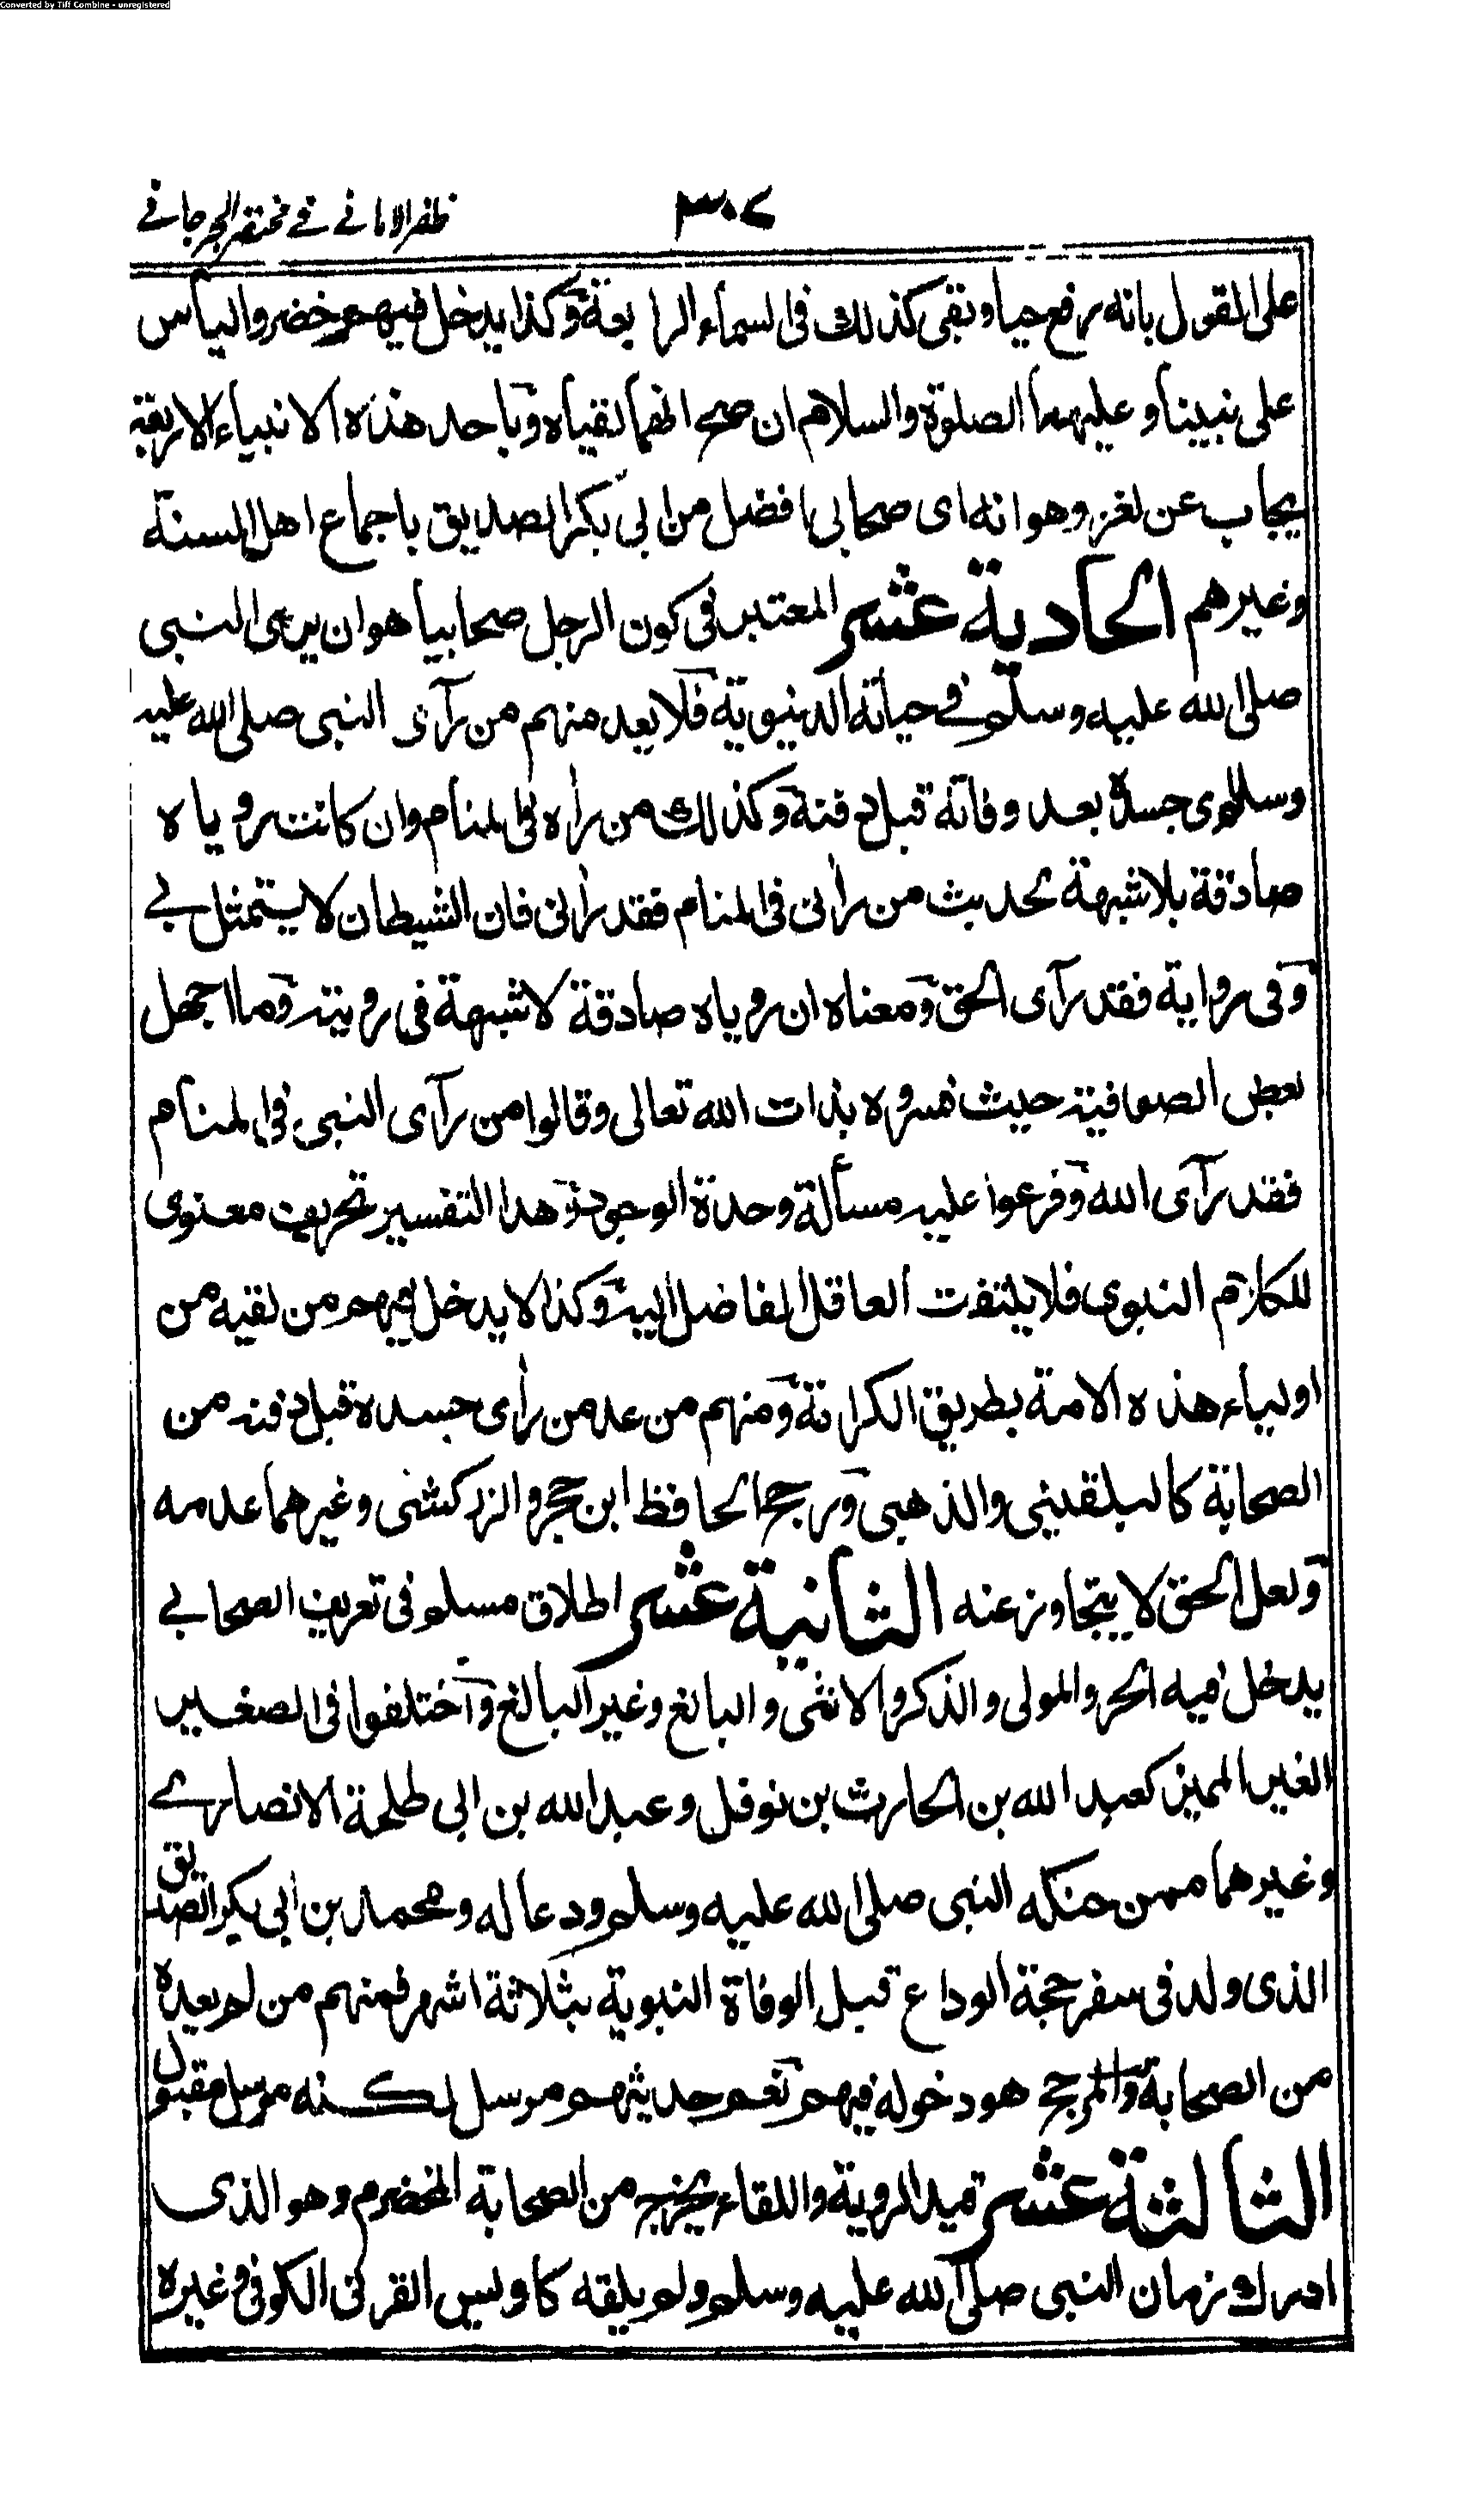 Converted by Tiff Combine - unregistered
ظفر الامانے فے مختصر الجرجانے
۳۰۲
على القول بانه رفع حيا وبقى كذلك فى السماء الرابعة وكذا يدخل فيهم خضر والياس
على نبينا وعليهما الصلوة والسلام ان صح انهما لقياه وباحد هذه الانبياء الاربعة
يجاب عن لغز وهو انه اى صحابى افضل من ابى بكر الصديق باجماع اهل السنة
وغيرهم الحادية عشر المعتبر فى كون الرجل صحابيا هو ان يرى النبى
صلى الله عليه وسلم فے حياته الدنيوية فلا يعد منهم من رآى النبى صلى الله عليه
وسلم وى جسده بعد وفاته قبل دفنه وكذلك من رأه فى المنام وان كانت روياه
صادقة بلا شبهة لحديث من رأنى فى المنام فقد رأنى فان الشيطان لا يتمثل بے
وفى رواية فقد رآى الحق ومعناه ان روياه صادقة لا شبهة فى رويته وما اجهل
بعض الصوافية حيث فسروه بذات الله تعالى وقالوا من رآى النبى فى المنام
فقد رآى الله وفرعوا عليه مسألة وحدة الوجود وهذا التفسير تحريف معنوى
للكلام النبوى فلا يلتفت العاقل الفاضل اليه وكذا لا يدخل فيهم من لقيه من
اولياء هذه الامة بطريق الكرامة ومنهم من عد من رأى جسده قبل دفنه من
الصحابة كالبلقينى والذهبى ورجح الحافظ ابن حجر والزركشى وغيرهما عدمه
ولعل الحق لا يتجاوز عنه الثانية عشر اطلاق مسلم فى تعريف الصحابے
يدخل فيه الحر والمولى والذكر والانثى والبالغ وغير البالغ واختلفوا فى الصغير
الغير المميز كعبد الله بن الحارث بن نوفل وعبد الله بن ابى طلحة الانصارے
وغيرهما ممن حنكه النبى صلى الله عليه وسلم ودعا له ومحمد بن ابى بكر الصديق
الذى ولد فى سفر حجة الوداع قبل الوفاة النبوية بثلاثة اشهر فمنهم من لم يعده
من الصحابة والمرجح هو دخوله فيهم نعم حديثهم مرسل لكنه مرسل مقبول
الثالثة عشر قيد الروية واللقاء يخرج من الصحابة المخضرم وهو الذى
ادرك زمان النبى صلى الله عليه وسلم ولم يلقه كاويس القرنى الكوفى وغيره